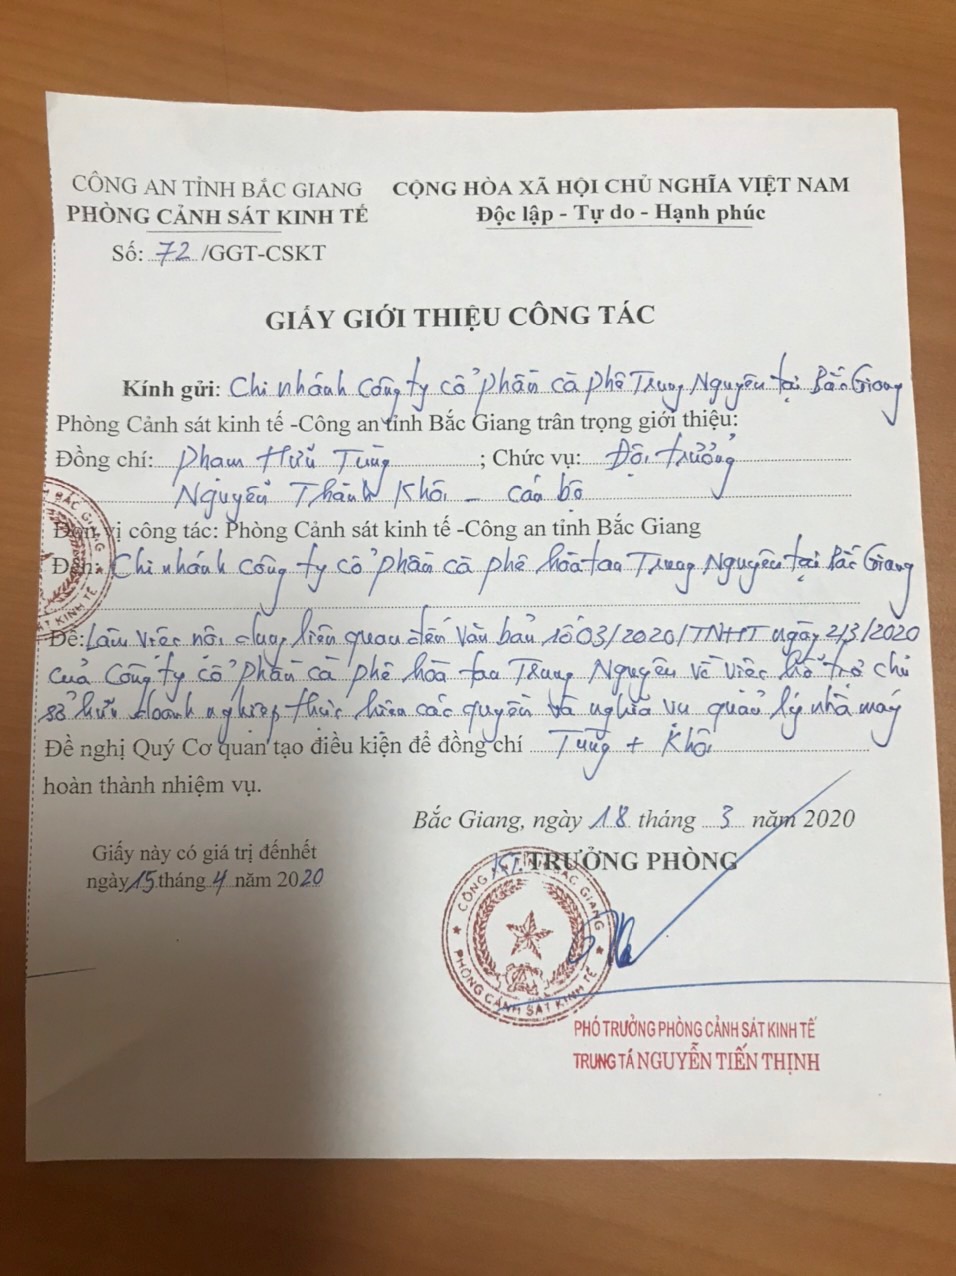 CÔNG AN TỈNH BẮC GIANG
PHÒNG CẢNH SÁT KINH TẾ
Số: 72 /GGT-CSKT
CỘNG HÒA XÃ HỘI CHỦ NGHĨA VIỆT NAM
Độc lập - Tự do - Hạnh phúc
GIẤY GIỚI THIỆU CÔNG TÁC
Kính gửi: Chi nhánh Công ty cổ phần cà phê Trung Nguyên tại Bắc Giang
Phòng Cảnh sát kinh tế -Công an tỉnh Bắc Giang trân trọng giới thiệu:
Đồng chí: Phạm Hữu Tùng ; Chức vụ: Đội trưởng
Nguyễn Thành Khôi - Cán bộ
Đơn vị công tác: Phòng Cảnh sát kinh tế -Công an tỉnh Bắc Giang
Đến: Chi nhánh Công ty cổ phần cà phê hòa tan Trung Nguyên tại Bắc Giang
Để: Làm việc nội dung liên quan đến Văn bản số 03/2020/TNHT ngày 2/3/2020
của Công ty cổ phần cà phê hòa tan Trung Nguyên về việc hỗ trợ chủ
sở hữu doanh nghiệp thực hiện các quyền và nghĩa vụ quản lý nhà máy
Đề nghị Quý Cơ quan tạo điều kiện để đồng chí Tùng + Khôi
hoàn thành nhiệm vụ.
Bắc Giang, ngày 18 tháng 3 năm 2020
Giấy này có giá trị đếnhết
ngày 15 tháng 4 năm 2020
KT. TRƯỞNG PHÒNG
CÔNG AN TỈNH BẮC GIANG
PHÒNG CẢNH SÁT KINH TẾ
PHÓ TRƯỞNG PHÒNG CẢNH SÁT KINH TẾ
TRUNG TÁ NGUYỄN TIẾN THỊNH